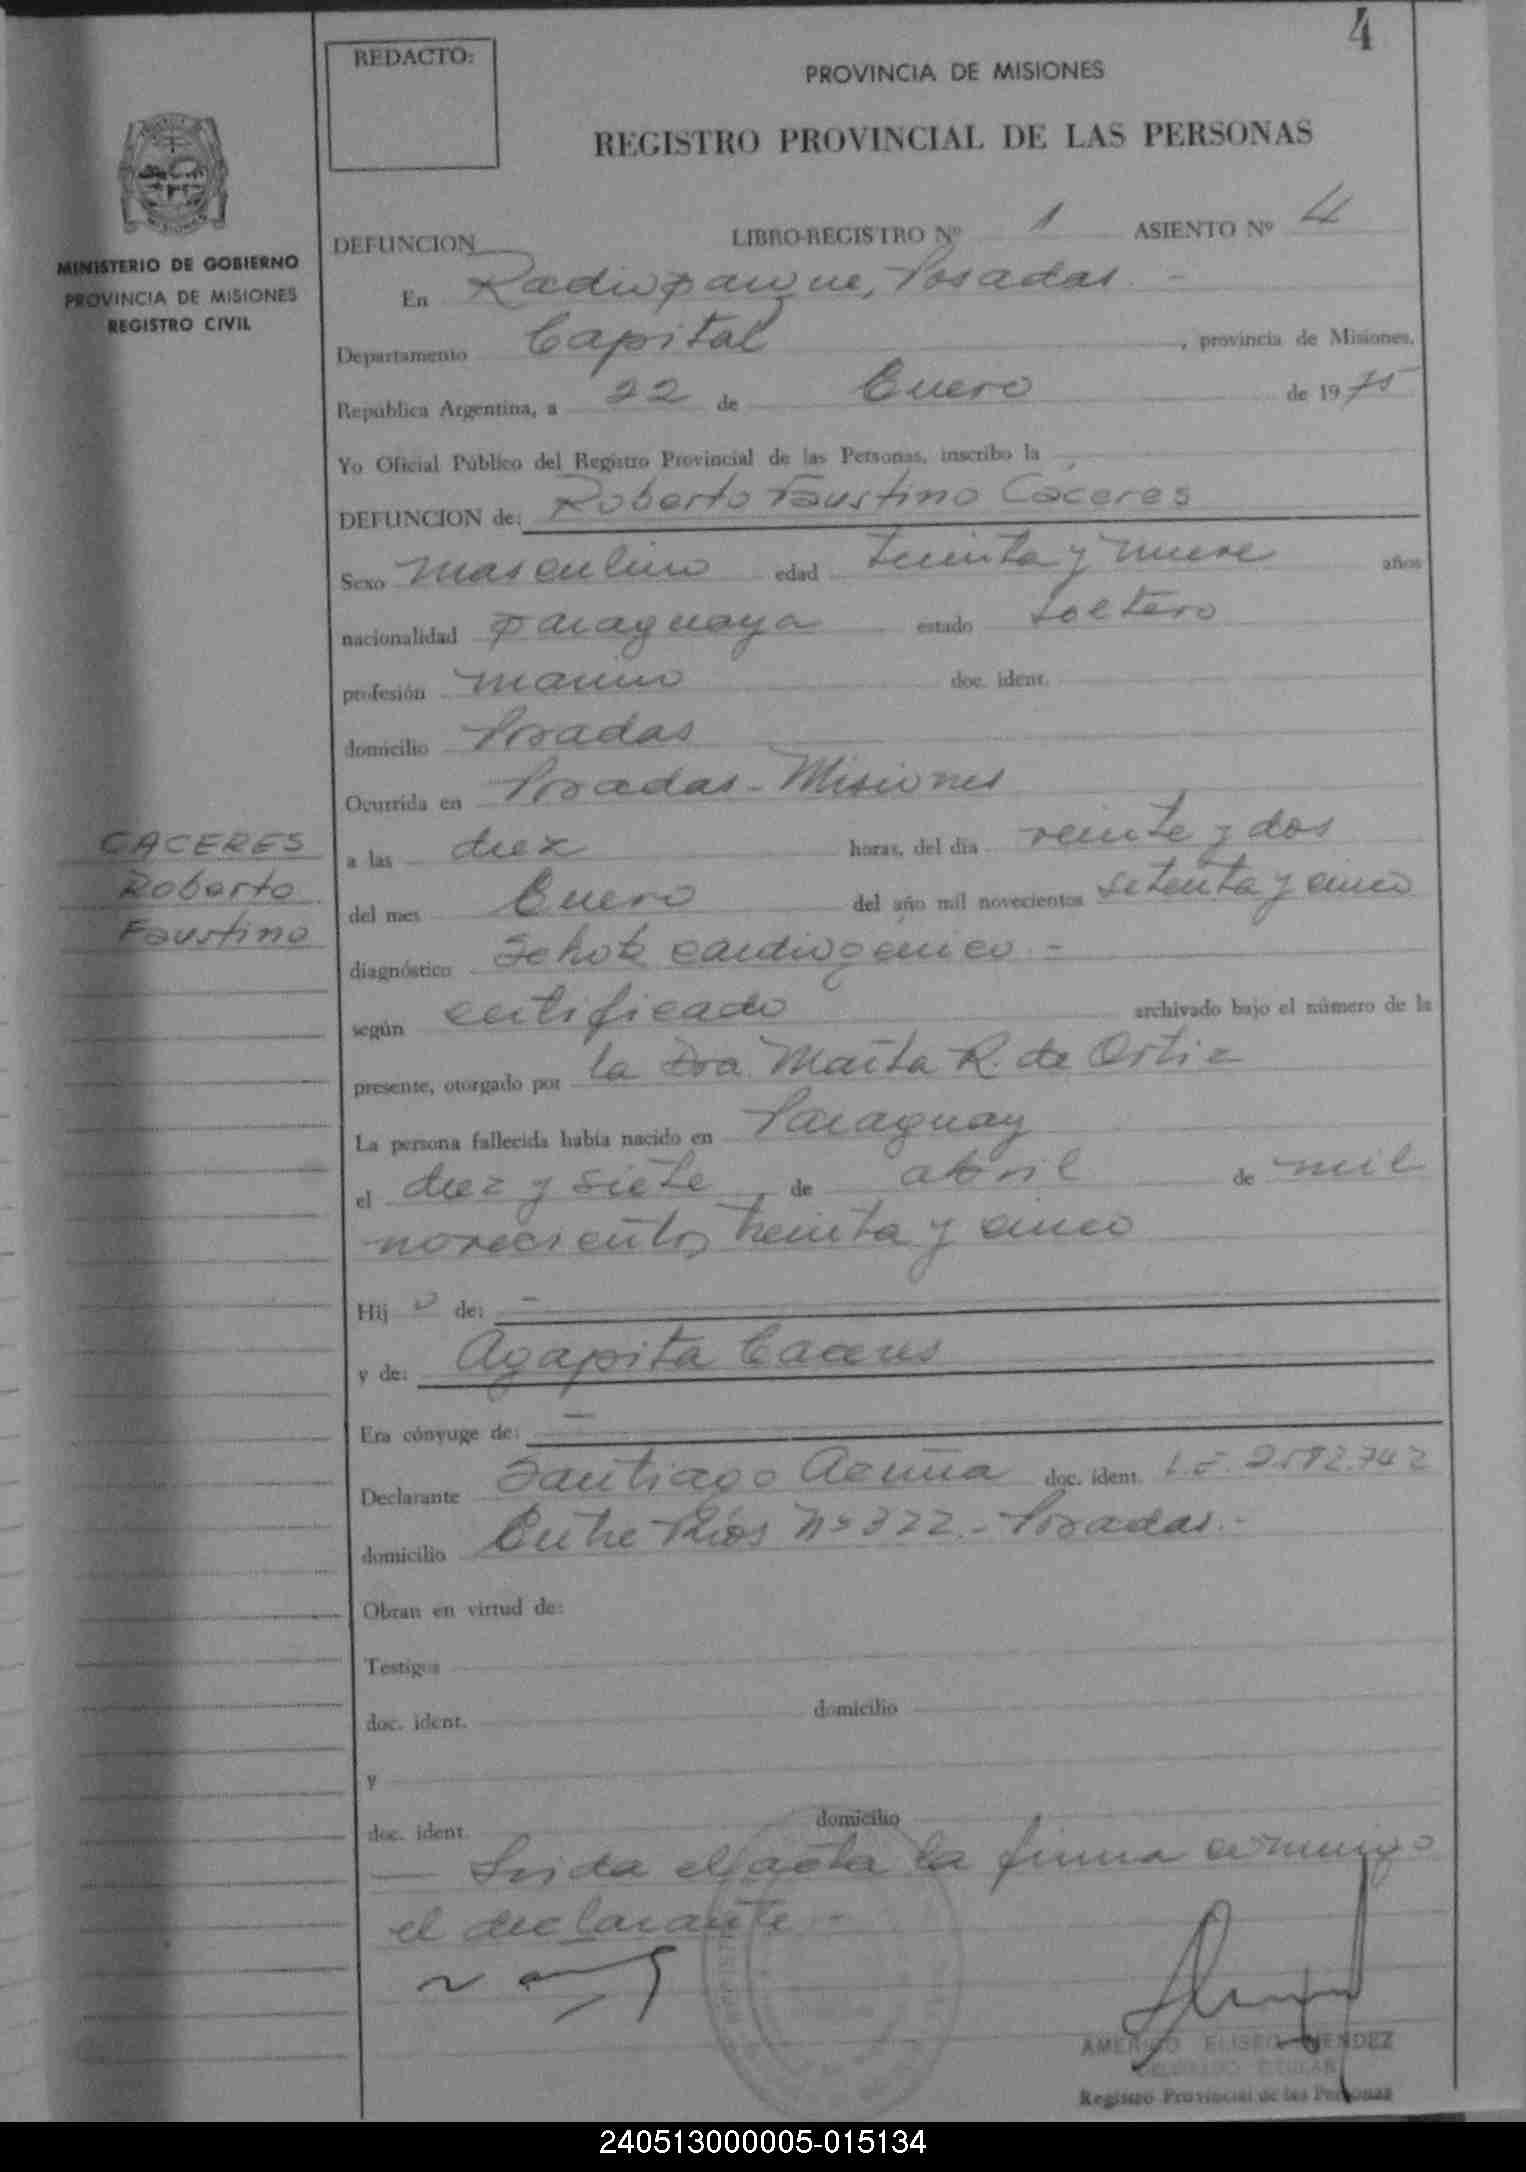 4
REDACTO:
PROVINCIA DE MISIONES
REGISTRO PROVINCIAL DE LAS PERSONAS
MINISTERIO DE GOBIERNO
PROVINCIA DE MISIONES
REGISTRO CIVIL
DEFUNCION LIBRO-REGISTRO Nº 1 ASIENTO Nº 4
En Radioparque, Posadas. -
Departamento Capital, provincia de Misiones,
República Argentina, a 22 de Enero de 1975
Yo Oficial Público del Registro Provincial de las Personas, inscribo la
DEFUNCION de: Roberto Faustino Cáceres
Sexo masculino edad treinta y nueve años
nacionalidad paraguaya estado soltero
profesión marino doc. ident.
domicilio Posadas
Ocurrida en Posadas - Misiones
CACERES
Roberto
Faustino
a las diez horas, del día veinte y dos
del mes Enero del año mil novecientos setenta y cinco
diagnóstico Schok cardiogenico. -
según certificado archivado bajo el número de la
presente, otorgado por la Dra. Marta R. de Ortiz
La persona fallecida había nacido en Paraguay
el diez y siete de abril de mil
novecientos treinta y cinco
Hijo de: -
y de: Agapita Caceres
Era cónyuge de: -
Declarante Santiago Acuña doc. ident. L.E. 2.592.742
domicilio Entre Ríos Nº 322. - Posadas. -
Obran en virtud de:
Testigos
doc. ident. domicilio
y
doc. ident. domicilio
— Leida el acta la firma conmigo
el declarante. -
AMERICO ELISEO MENDEZ
DELEGADO TITULAR
Registro Provincial de las Personas
240513000005-015134